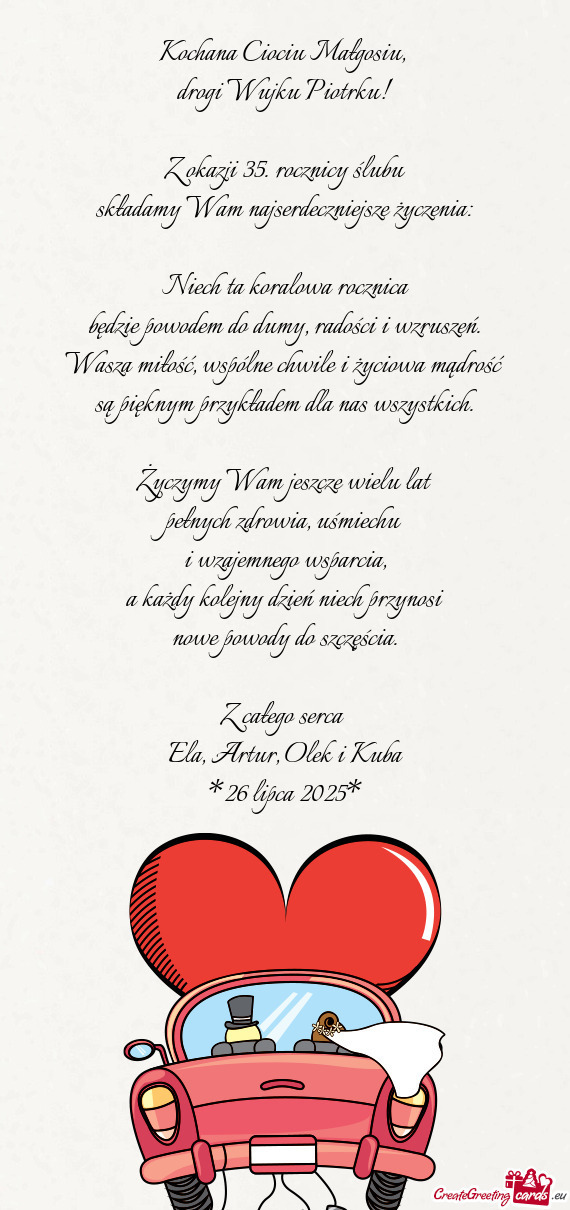 Kochana Ciociu Małgosiu,
drogi Wujku Piotrku!
Z okazji 35. rocznicy ślubu
składamy Wam najserdeczniejsze życzenia:
Niech ta koralowa rocznica
będzie powodem do dumy, radości i wzruszeń.
Wasza miłość, wspólne chwile i życiowa mądrość
są pięknym przykładem dla nas wszystkich.
Życzymy Wam jeszcze wielu lat
pełnych zdrowia, uśmiechu
i wzajemnego wsparcia,
a każdy kolejny dzień niech przynosi
nowe powody do szczęścia.
Z całego serca
Ela, Artur, Olek i Kuba
*26 lipca 2025*
CreateGreeting cards .eu